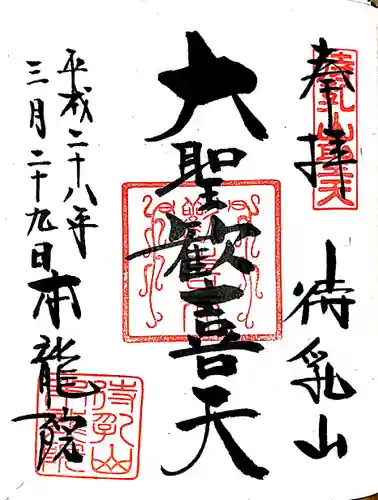 奉拝
待乳山
大聖歓喜天
平成二十八年
三月二十九日
本龍院
待乳山聖天
待乳山
本龍院